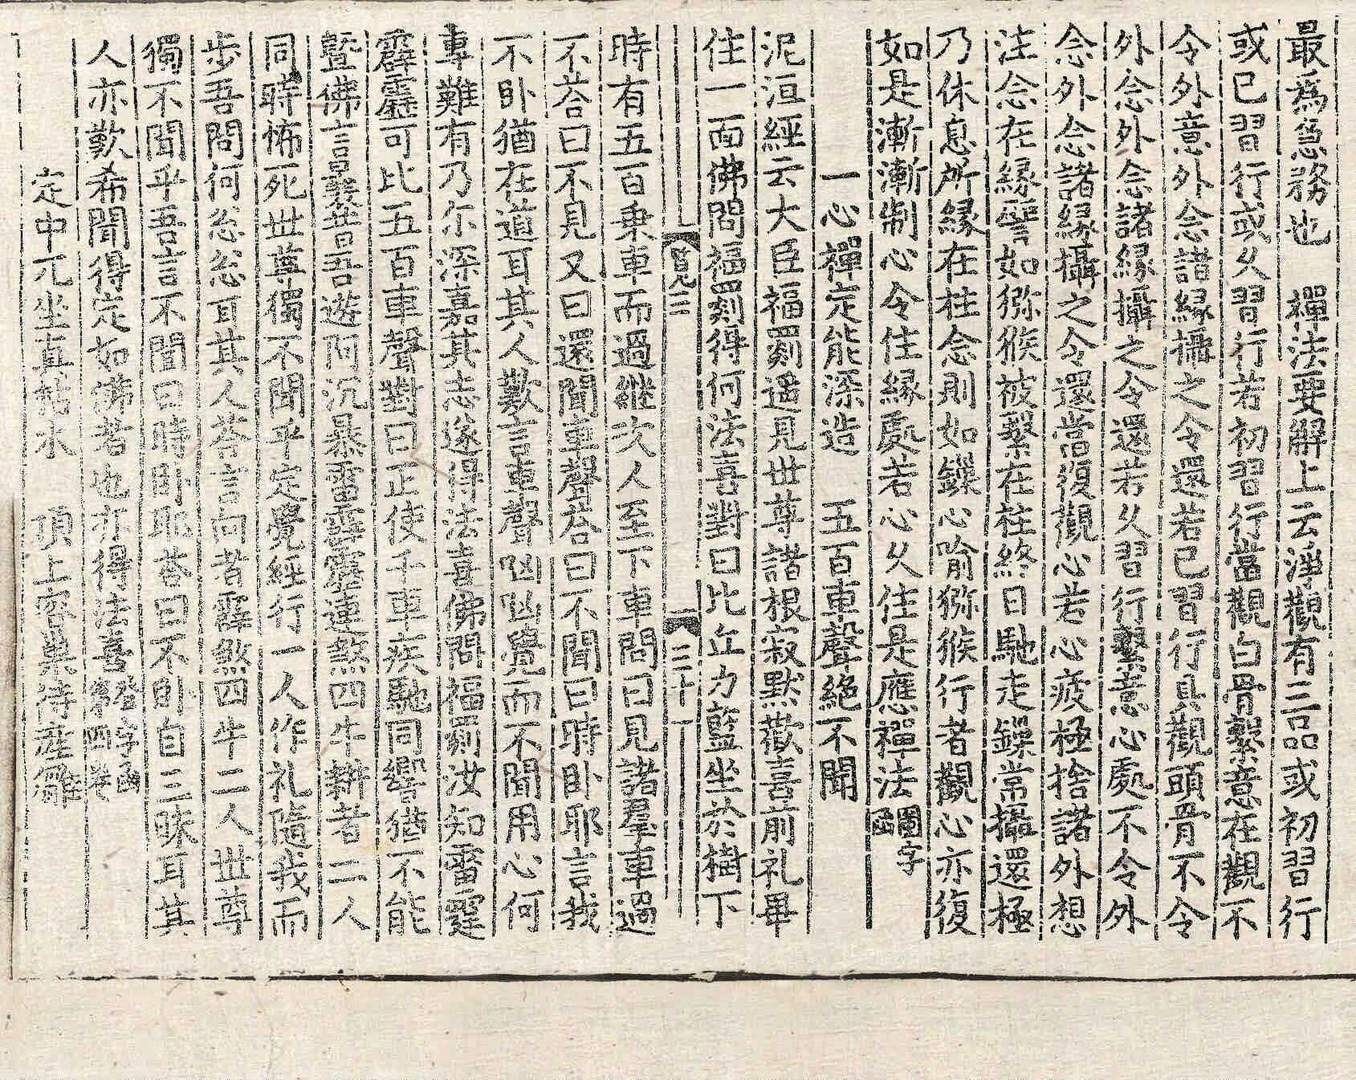 最爲急務也　禪法要解上云淨觀有三品或初習行
或已習行或久習行若初習行當觀白骨繫意在觀不
令外意外念諸縁攝之令還若已習行具觀頭骨不令
外念外念諸縁攝之令還若久習行繫意心處不令外
念外念諸縁攝之令還當復觀心若心疲極捨諸外想
注念在縁譬如獼猴被繫在柱終日馳走鏁常攝還極
乃休息所縁在柱念則如鏁心喻獼猴行者觀心亦復
如是漸漸制心令住縁處若心久住是應禪法圖字函
一心禪定能深造　五百車聲絶不聞
泥洹經云大臣福罽遥見世尊諸根寂默歡喜前礼畢
住一面佛問福罽得何法喜對曰比丘力藍坐於樹下
覧二　二十一
時有五百乗車而過継次人至下車問曰見諸羣車過
不荅曰不見又曰還聞車聲荅曰不聞曰時卧耶言我
不卧猶在道耳其人歎言車聲凶凶覺而不聞用心何
專難有乃尓深嘉其志遂得法喜佛問福罽汝知雷霆
霹靂可比五百車聲對曰正使千車疾馳同響猶不能
曁佛言曩昔吾遊阿沉暴雷霹靂連煞四牛耕者二人
同時怖死世尊獨不聞乎定覺經行一人作礼隨我而
步吾問何忩忩耳其人荅言向者霹煞四牛二人世尊
獨不聞乎吾言不聞曰時卧耶荅曰不卧自三昧耳其
人亦歎希聞得定如佛者也亦得法喜登字函第四卷
定中兀坐眞枯木　頂上容巢待産雛